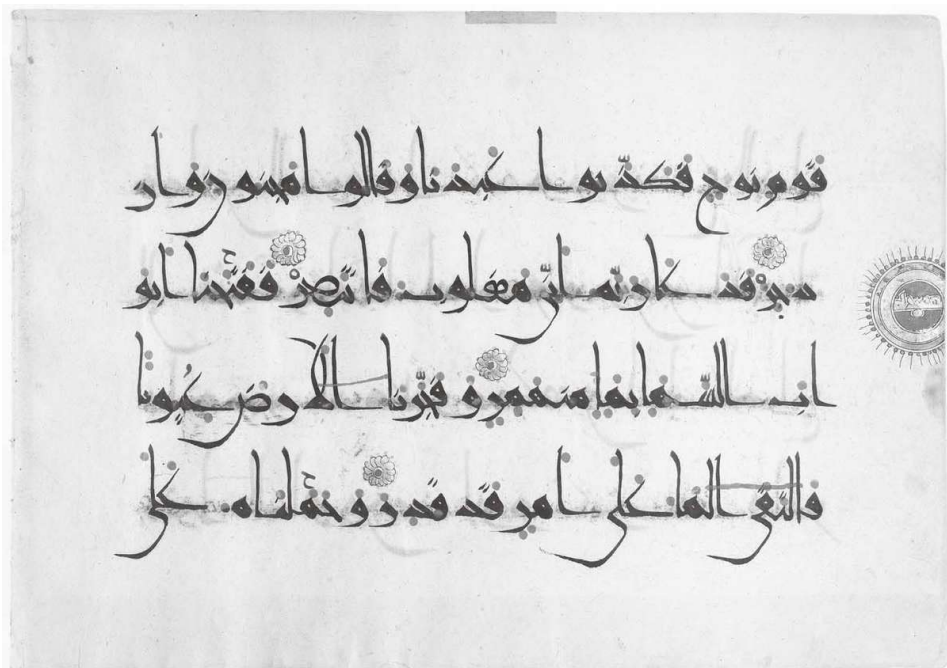 قوم نوح فكذّبوا عبدنا وقالوا مجنون واز
دجر فدعا ربّه انّي مغلوب فانتصر ففتحنا ابو
اب السّما بما منهمر وفجّرنا الارض عيونا
فالتقى الما على امر قد قدر وحملناه على